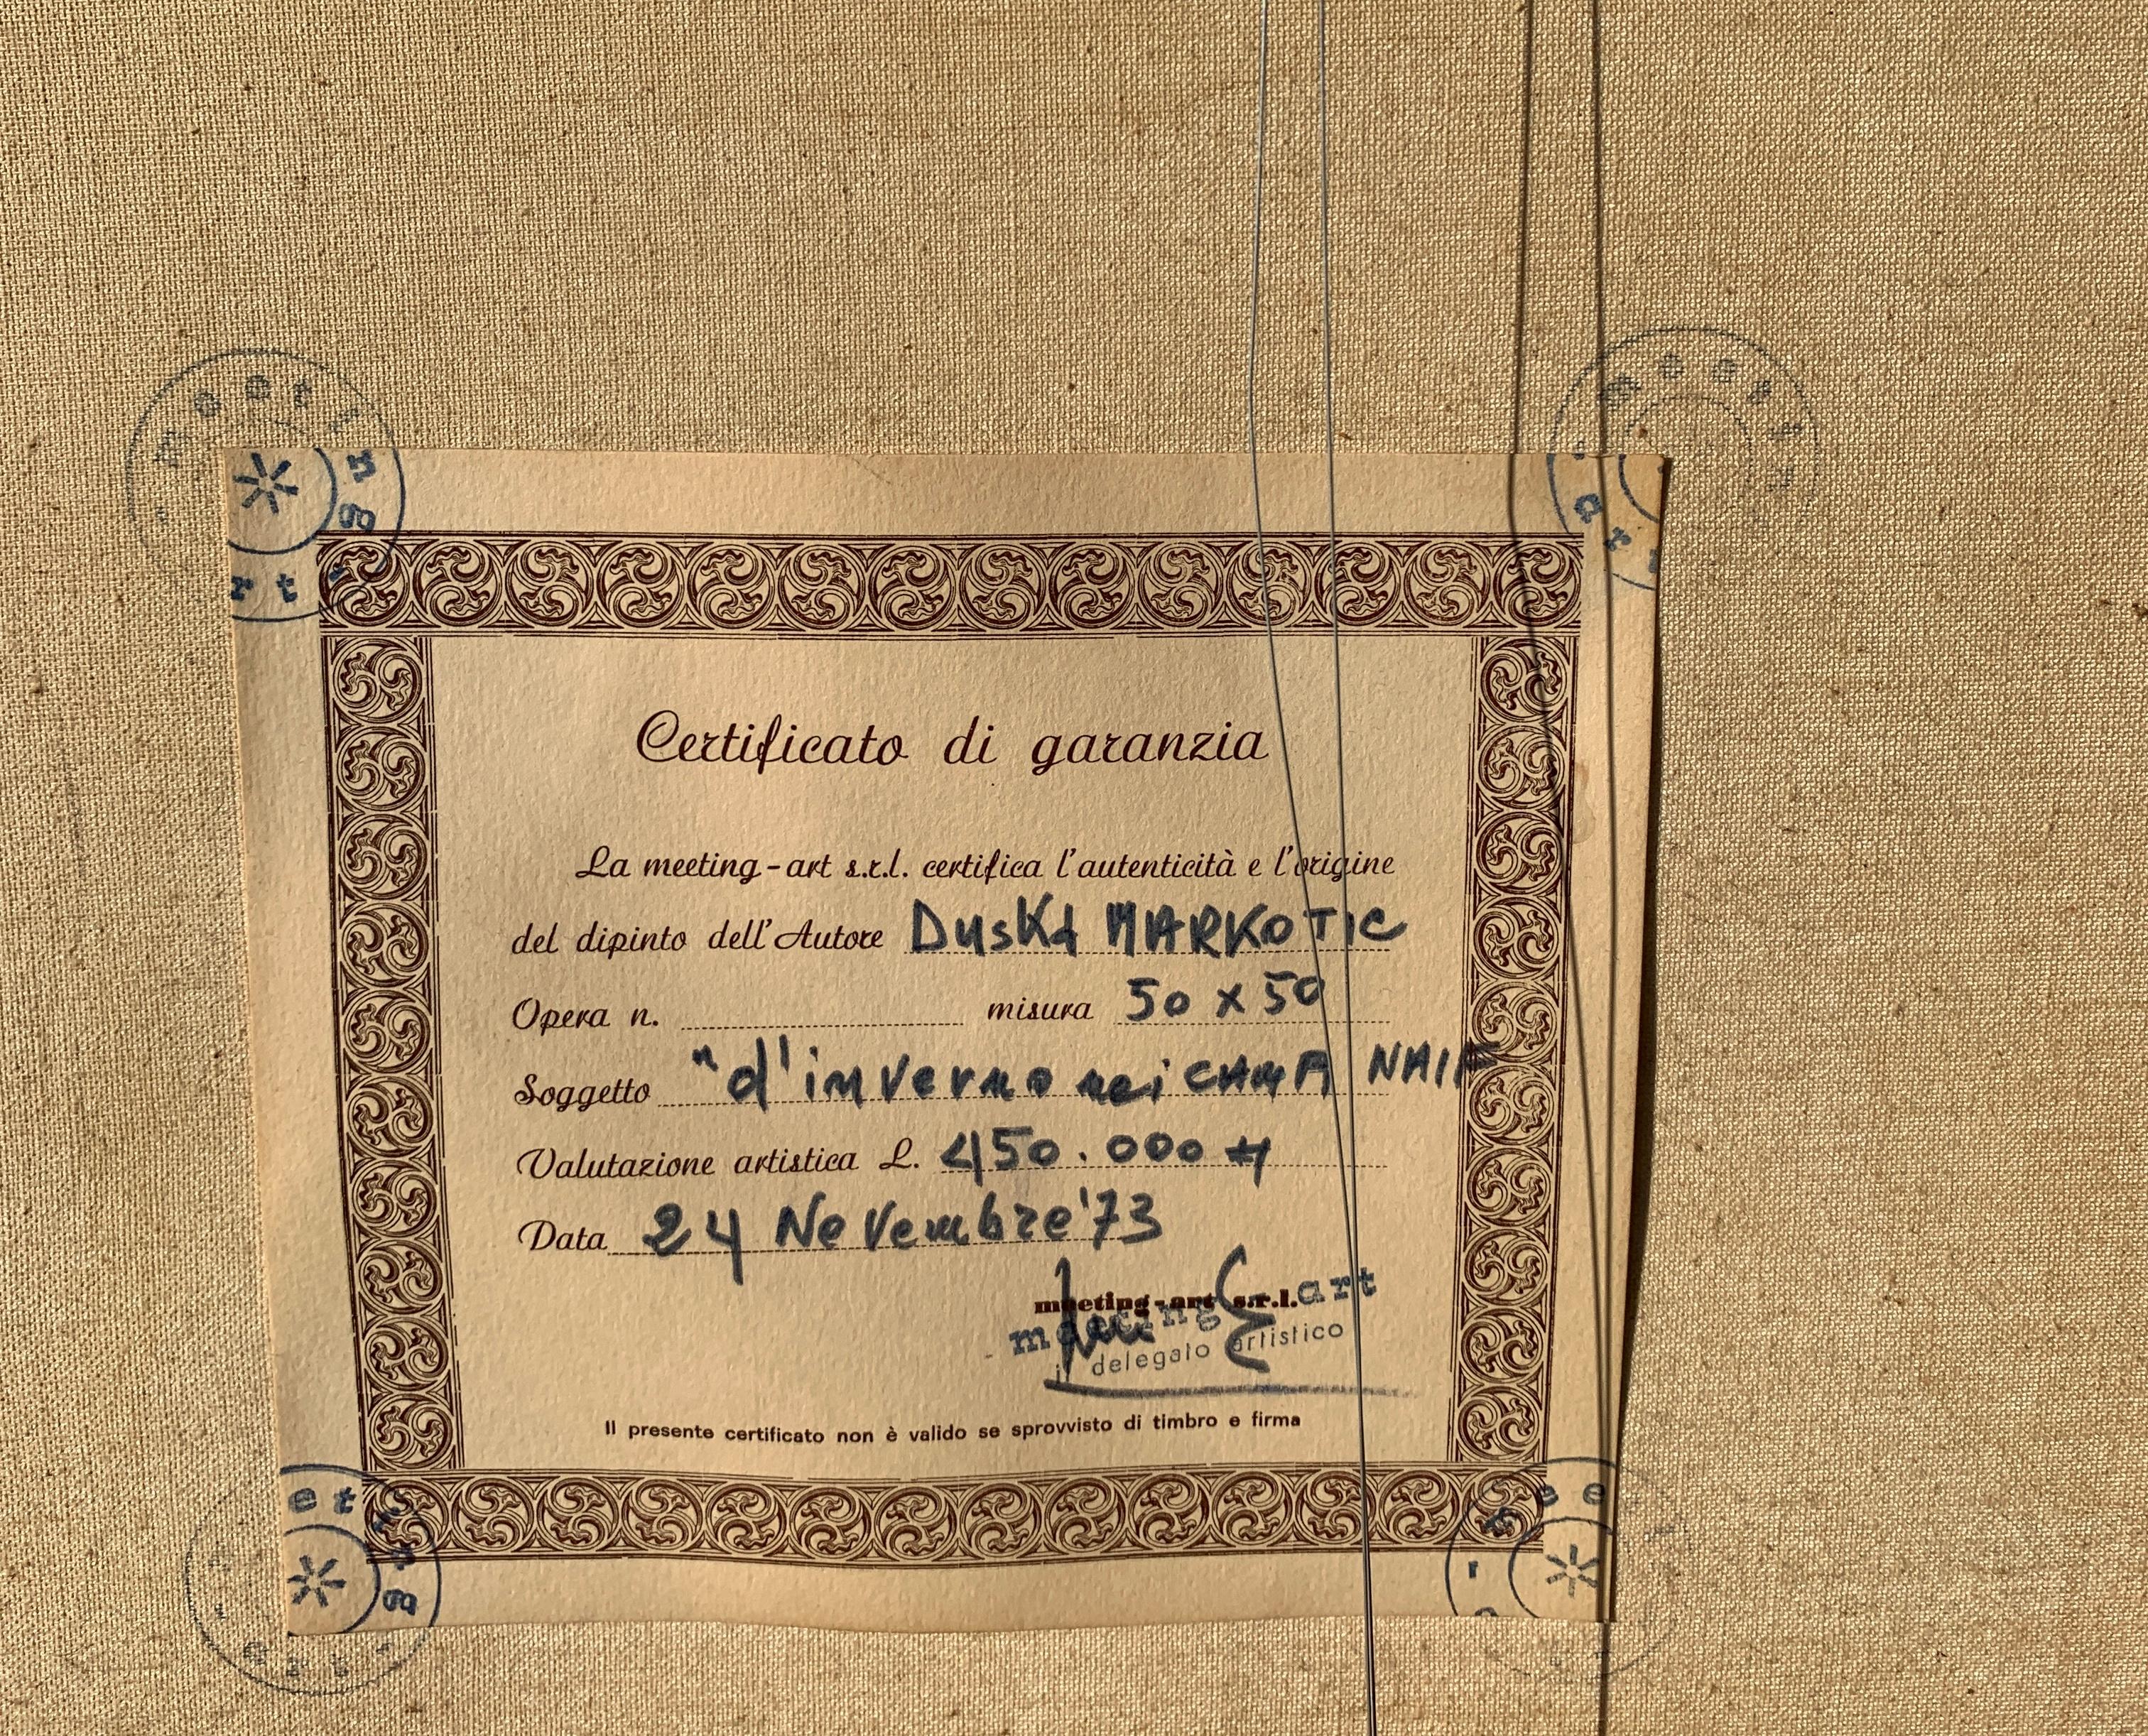 meeting
art
art
Certificato di garanzia
La meeting-art s.r.l. certifica l'autenticità e l'origine
del dipinto dell'Autore DusKa MARKOTIC
Opera n. misura 50 x 50
Soggetto "d'inverno nei NAIF
Valutazione artistica L. 450.000
Data 24 Novembre '73
meeting-art s.r.l.
meeting art
il delegato artistico
Il presente certificato non è valido se sprovvisto di timbro e firma
meeting
art